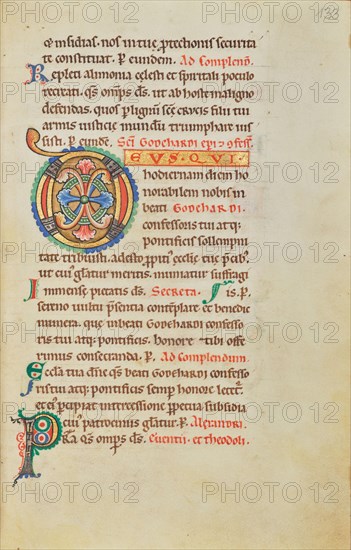 133
ce insidias. nos in tuę protectionis securita
te constituat. P. eundem. Ad Complend.
Repleti alimonia cęlesti et spiritali poculo
recreati. qs omps ds. ut ab hoste maligno
defendas. quos p lignum scę crucis filii tui
armis iusticię mundum triumphare ius
sisti. P. eundē. Sci Godehardi epi 7 cfess.
DEUS. QUI.
hodiernam diem ho
norabilem nobis in
beati Godehardi.
confessoris tui atq:
pontificis sollempni
tate tribuisti. adesto
ut eius glatur meritis. muniatur suffragi
Immensę pietatis ds. Secreta. is. P.
sereno uultu psentia contemplare et benedic
munera. quę in beati Godehardi confesso
ris tui atq: pontificis. honore tibi offe
rimus consecranda. P. Ad complendum.
Ecclā tua dne qs beati Godehardi confesso
ris tui atq: pontificis semp honore
et ei pcipiat intercessione ppetua subsidia
cui patrociniis glatur. P. Alexandri.
Pra qs omps ds. Euentii. et Theodoli.
PHOTO 12